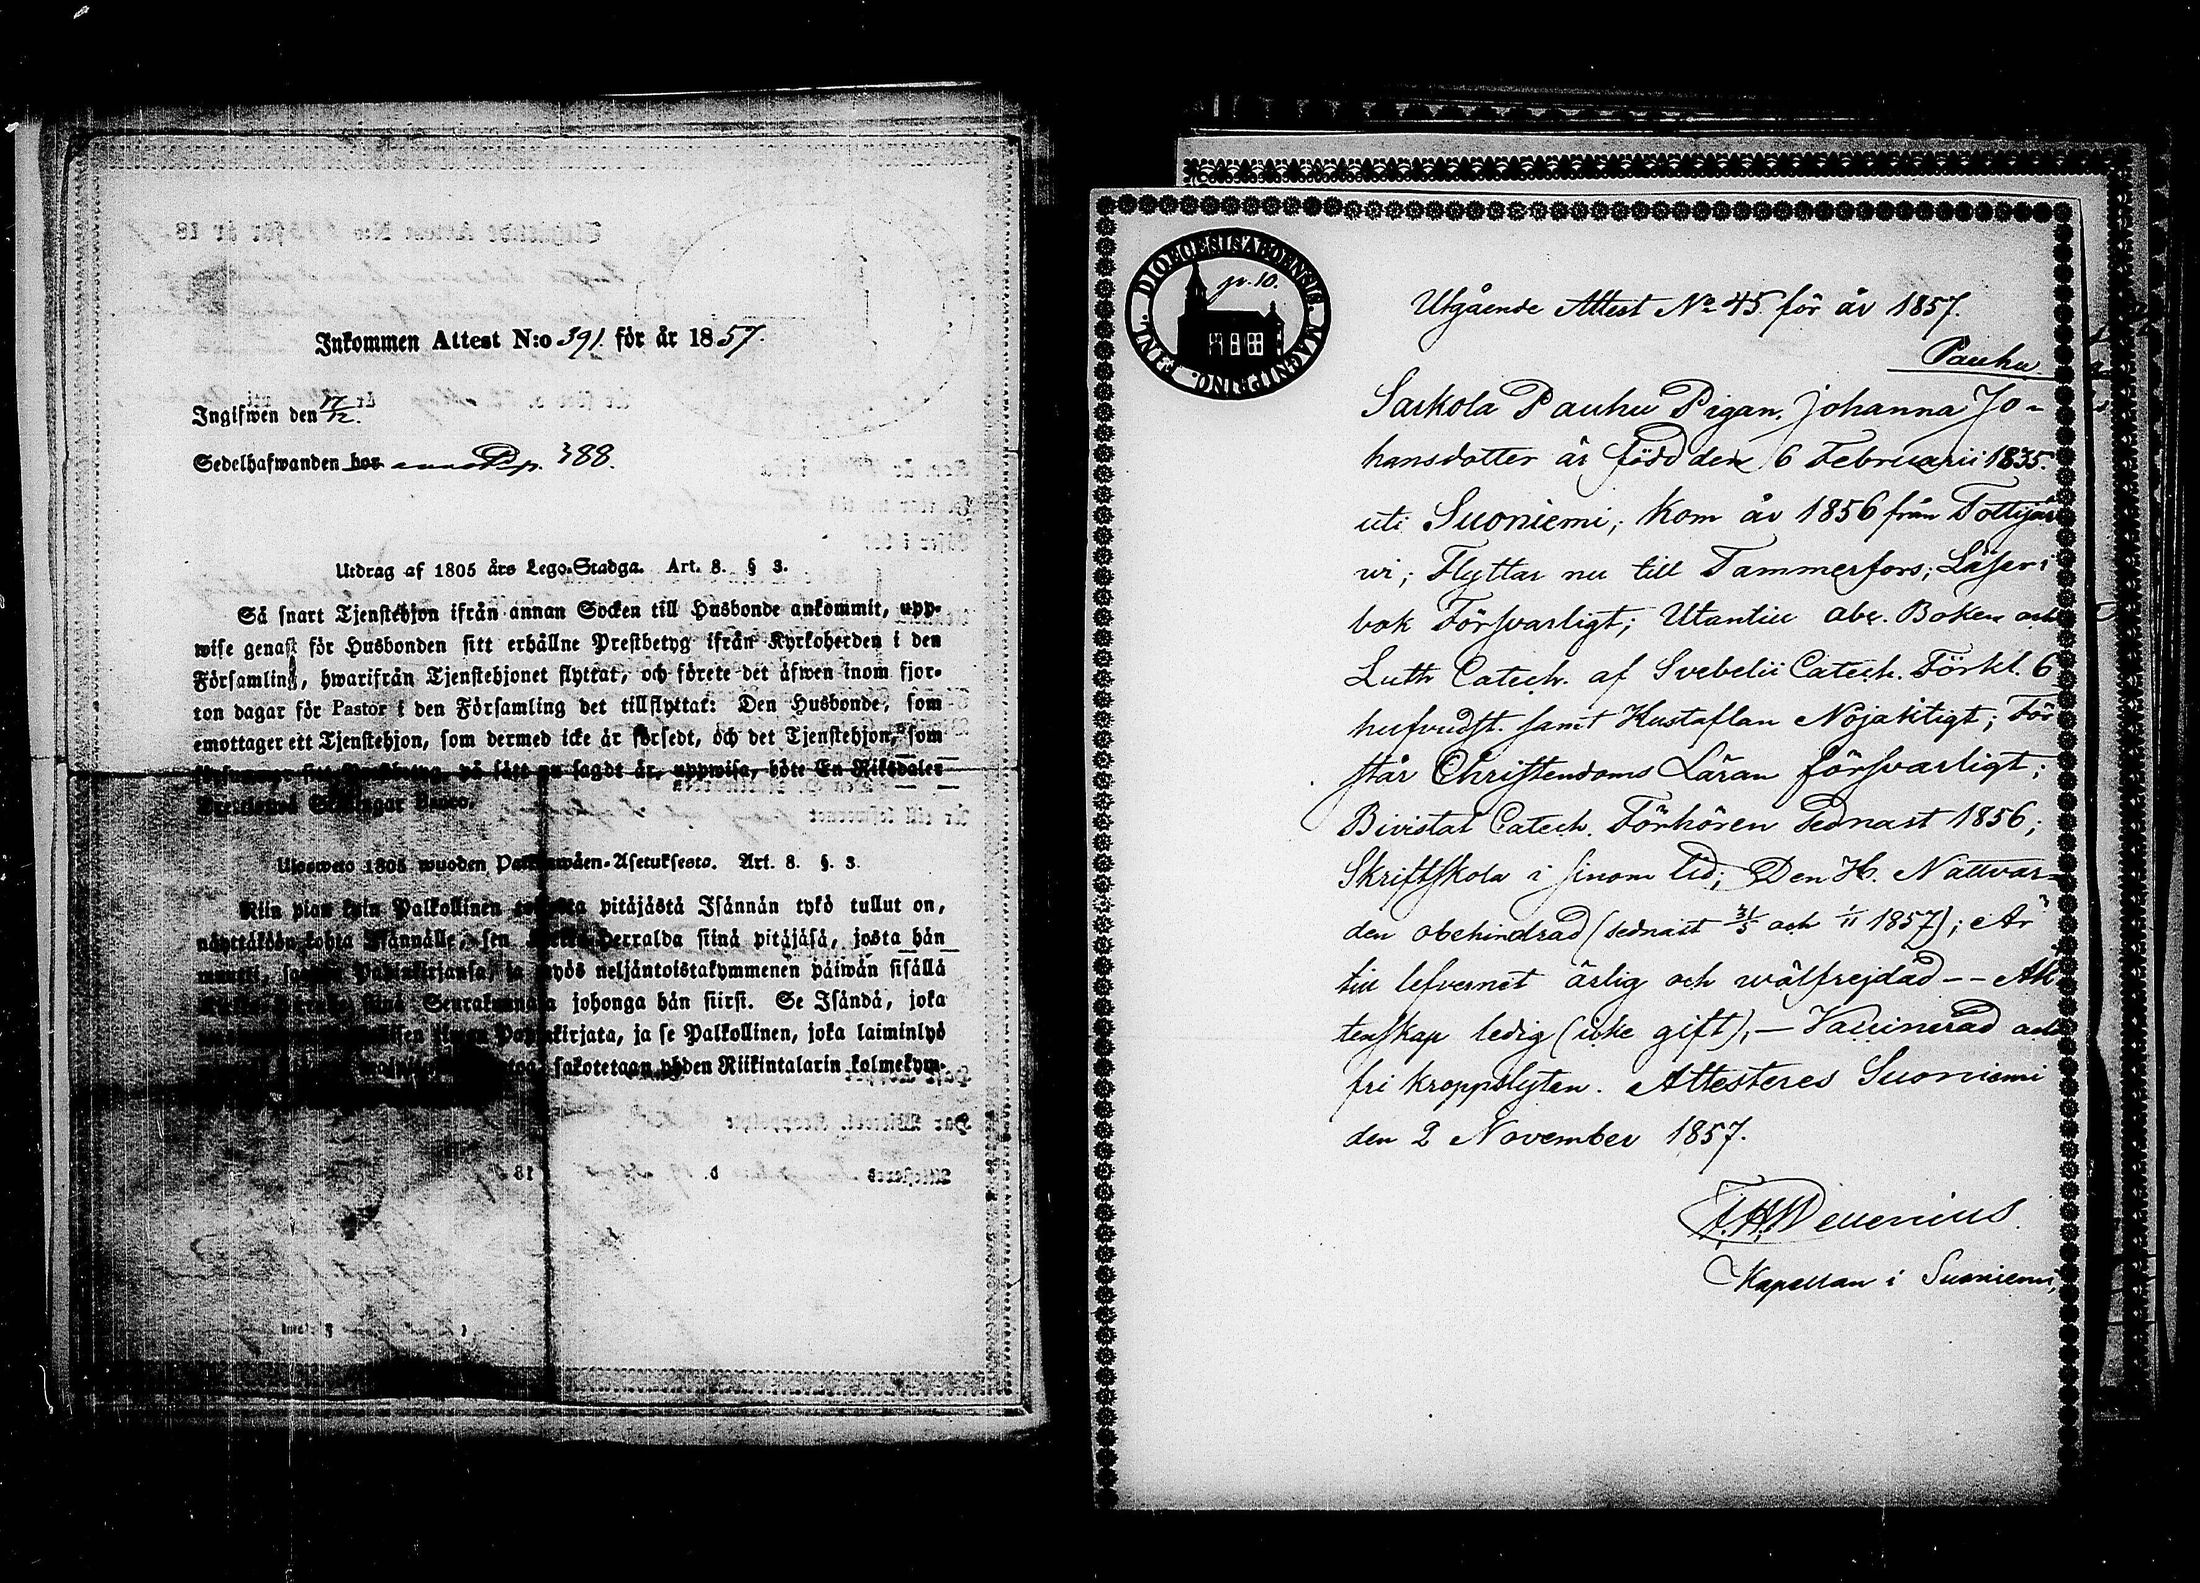 Inkommen Attest N:o 391. för år 1857.
Ingifwen den 17/12.
Sedelhafwanden bor anno Pg. 388.
Utdrag af 1805 års Lego-Stadga. Art. 8. § 3.
Så snart Tjenstehjon ifrån annan Socken till Husbonde ankommit, upp-
wise genast för Husbonden sitt erhållne Prestbetyg ifrån Kyrkoherden i den
Församling, hwarifrån Tjenstehjonet flyttat, och förete det äfwen inom fjor-
ton dagar för Pastor i den Församling det tillflyttat: Den Husbonde, som
emottager ett Tjenstehjon, som dermed icke är försedt, och det Tjenstehjon, som
på sätt nu sagdt är, uppwisa, böte En Riksdaler
Skillingar Banco.
Ulosweto 1805 wuoden Palkkawäen-Asetuksesta. Art. 8. §. 3.
Niin pian kuin Palkollinen toisesta pitäjästä Isännän tykö tullut on,
näyttäköön kohta Isännälle, sen Kirkkoherralda siinä pitäjäsä, josta hän
muutti, Papinkirjansa, ja myös neljäntoistakymmenen päiwän sisällä
siinä Seurakunnasa johonga hän siirst. Se Isändä, joka
Papinkirjata, ja se Palkollinen, joka laiminlyö
sakotetaan yhden Riikintalarin kolmekym-
DIOECESIS ABOENSIS. MAGNI PRINC. FINL.
pr. 10.
Utgående Attest No 45 för år 1857.
Pauhu
Sarkola Pauhu Pigan, Johanna Jo-
hansdotter är född den 6 Februarii 1835.
uti Suoniemi; kom år 1856 från Tottijär
wi; Flyttar nu till Tammerfors; Läser i
bok Försvarligt; Utantill abc. Boken och
Luth Catech. af Svebelii Catech. Förkl. 6
hufvudst. samt Hustaflan Nöjaktigt; För
står Christendoms Läran försvarligt;
Bivistat Catech. Förhören sednast 1856;
Skriftskola i sinom tid; Den H. Nattvar-
den obehindrad (sednast 31/5 och 1/11 1857); Är
till lefvernet ärlig och wälfrejdad -- Äk
tenskap ledig (icke gift); — Vaccinerad och
fri kroppslyten. Attesteres Suoniemi
den 2 November 1857.
Kapellan i Suoniemi,